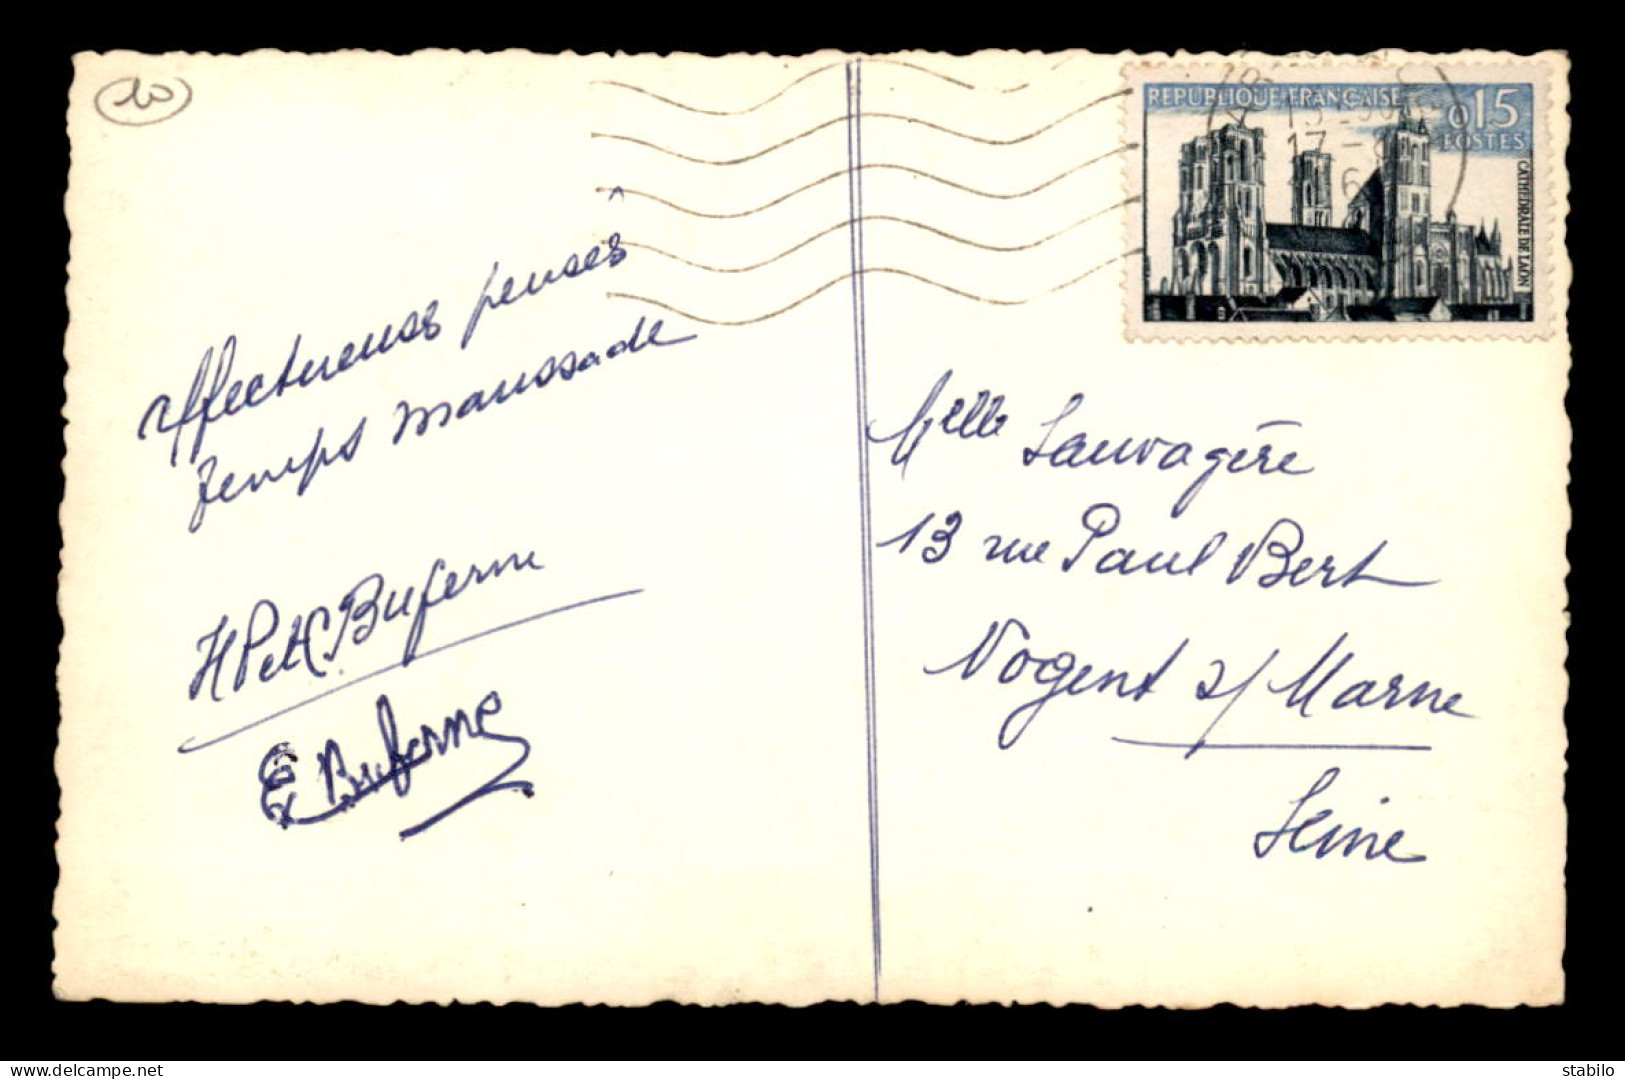 10
REPUBLIQUE FRANÇAISE
0,15
POSTES
CATHEDRALE DE LAON
13-30
17-
6
Affectueuses pensés
temps maussade
H Pett Buferne
E Buferne
Melle Sauvagère
13 rue Paul Bert
Nogent s/ Marne
Seine
delcampe.net
stabilo